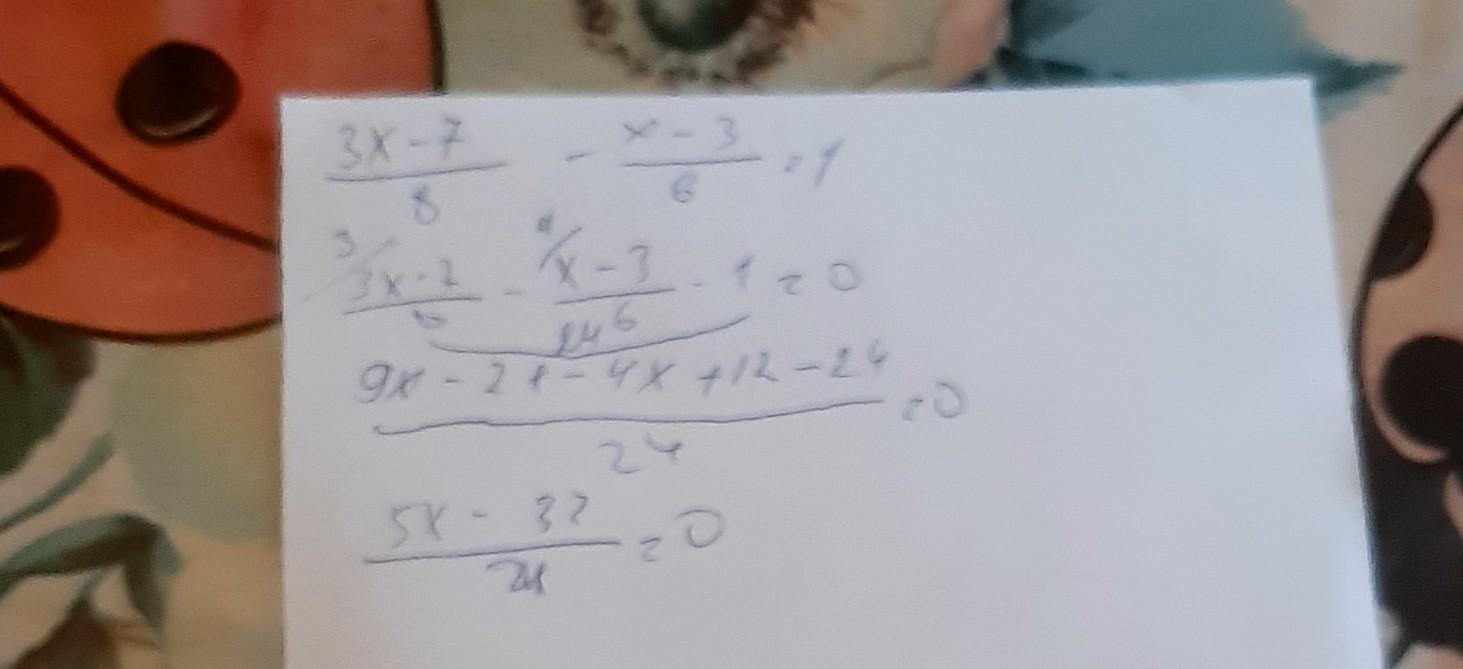 3x-7/8 - x-3/6 = 1
3/ 3x-7/8 - 4/ x-3/6 - 1 = 0
24
9x - 21 - 4x + 12 - 24/24 = 0
5x - 33/24 = 0